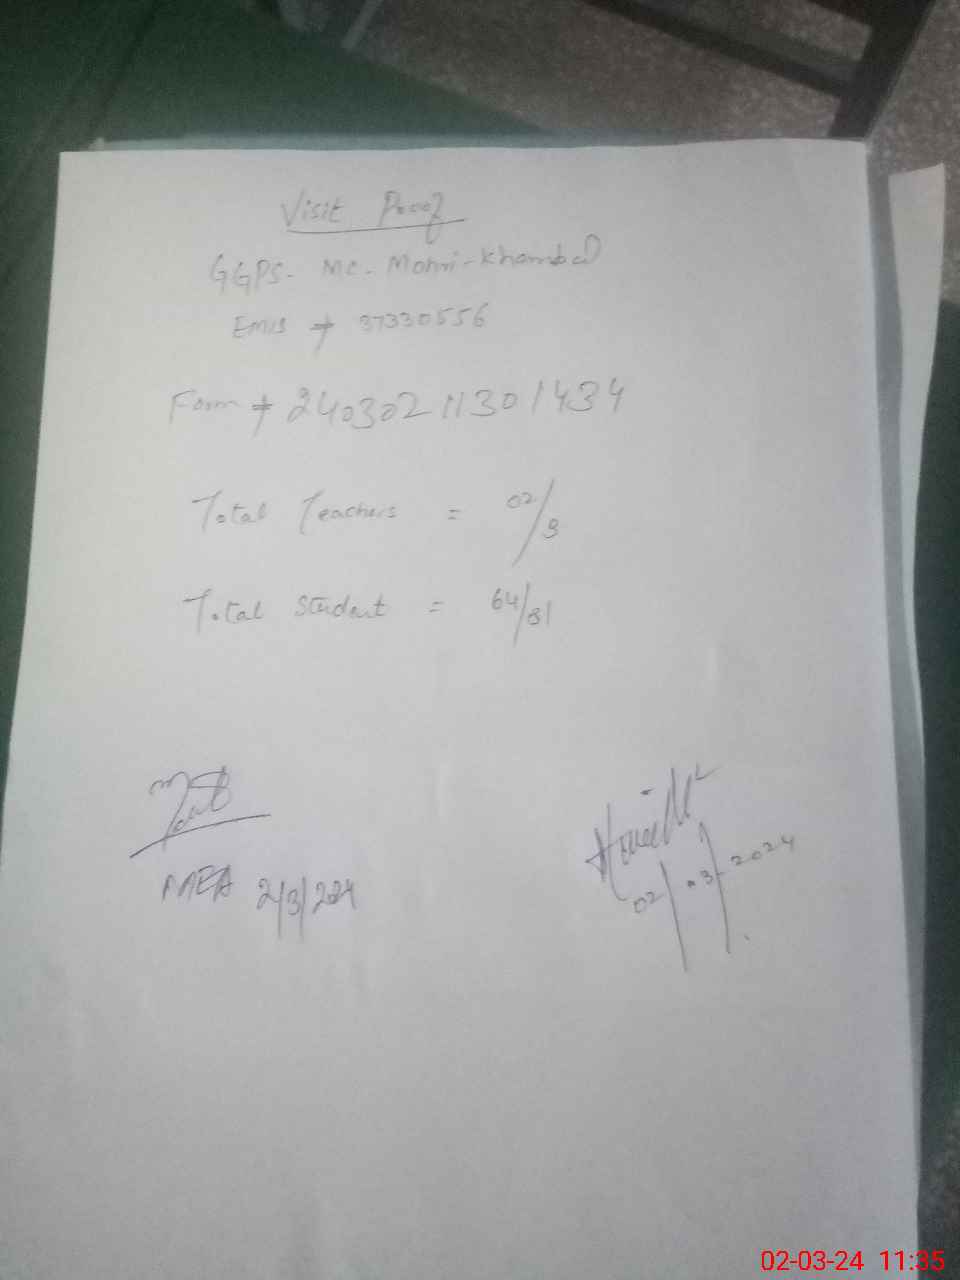 Visit Proof
GGPS. MC. Mohri-Khambal
EMIS # 37330556
Form # 24030211301434
Total Teachers = 02/3
Total Student = 64/81
MEA 2/3/2024
02/03/2024
02-03-24 11:35